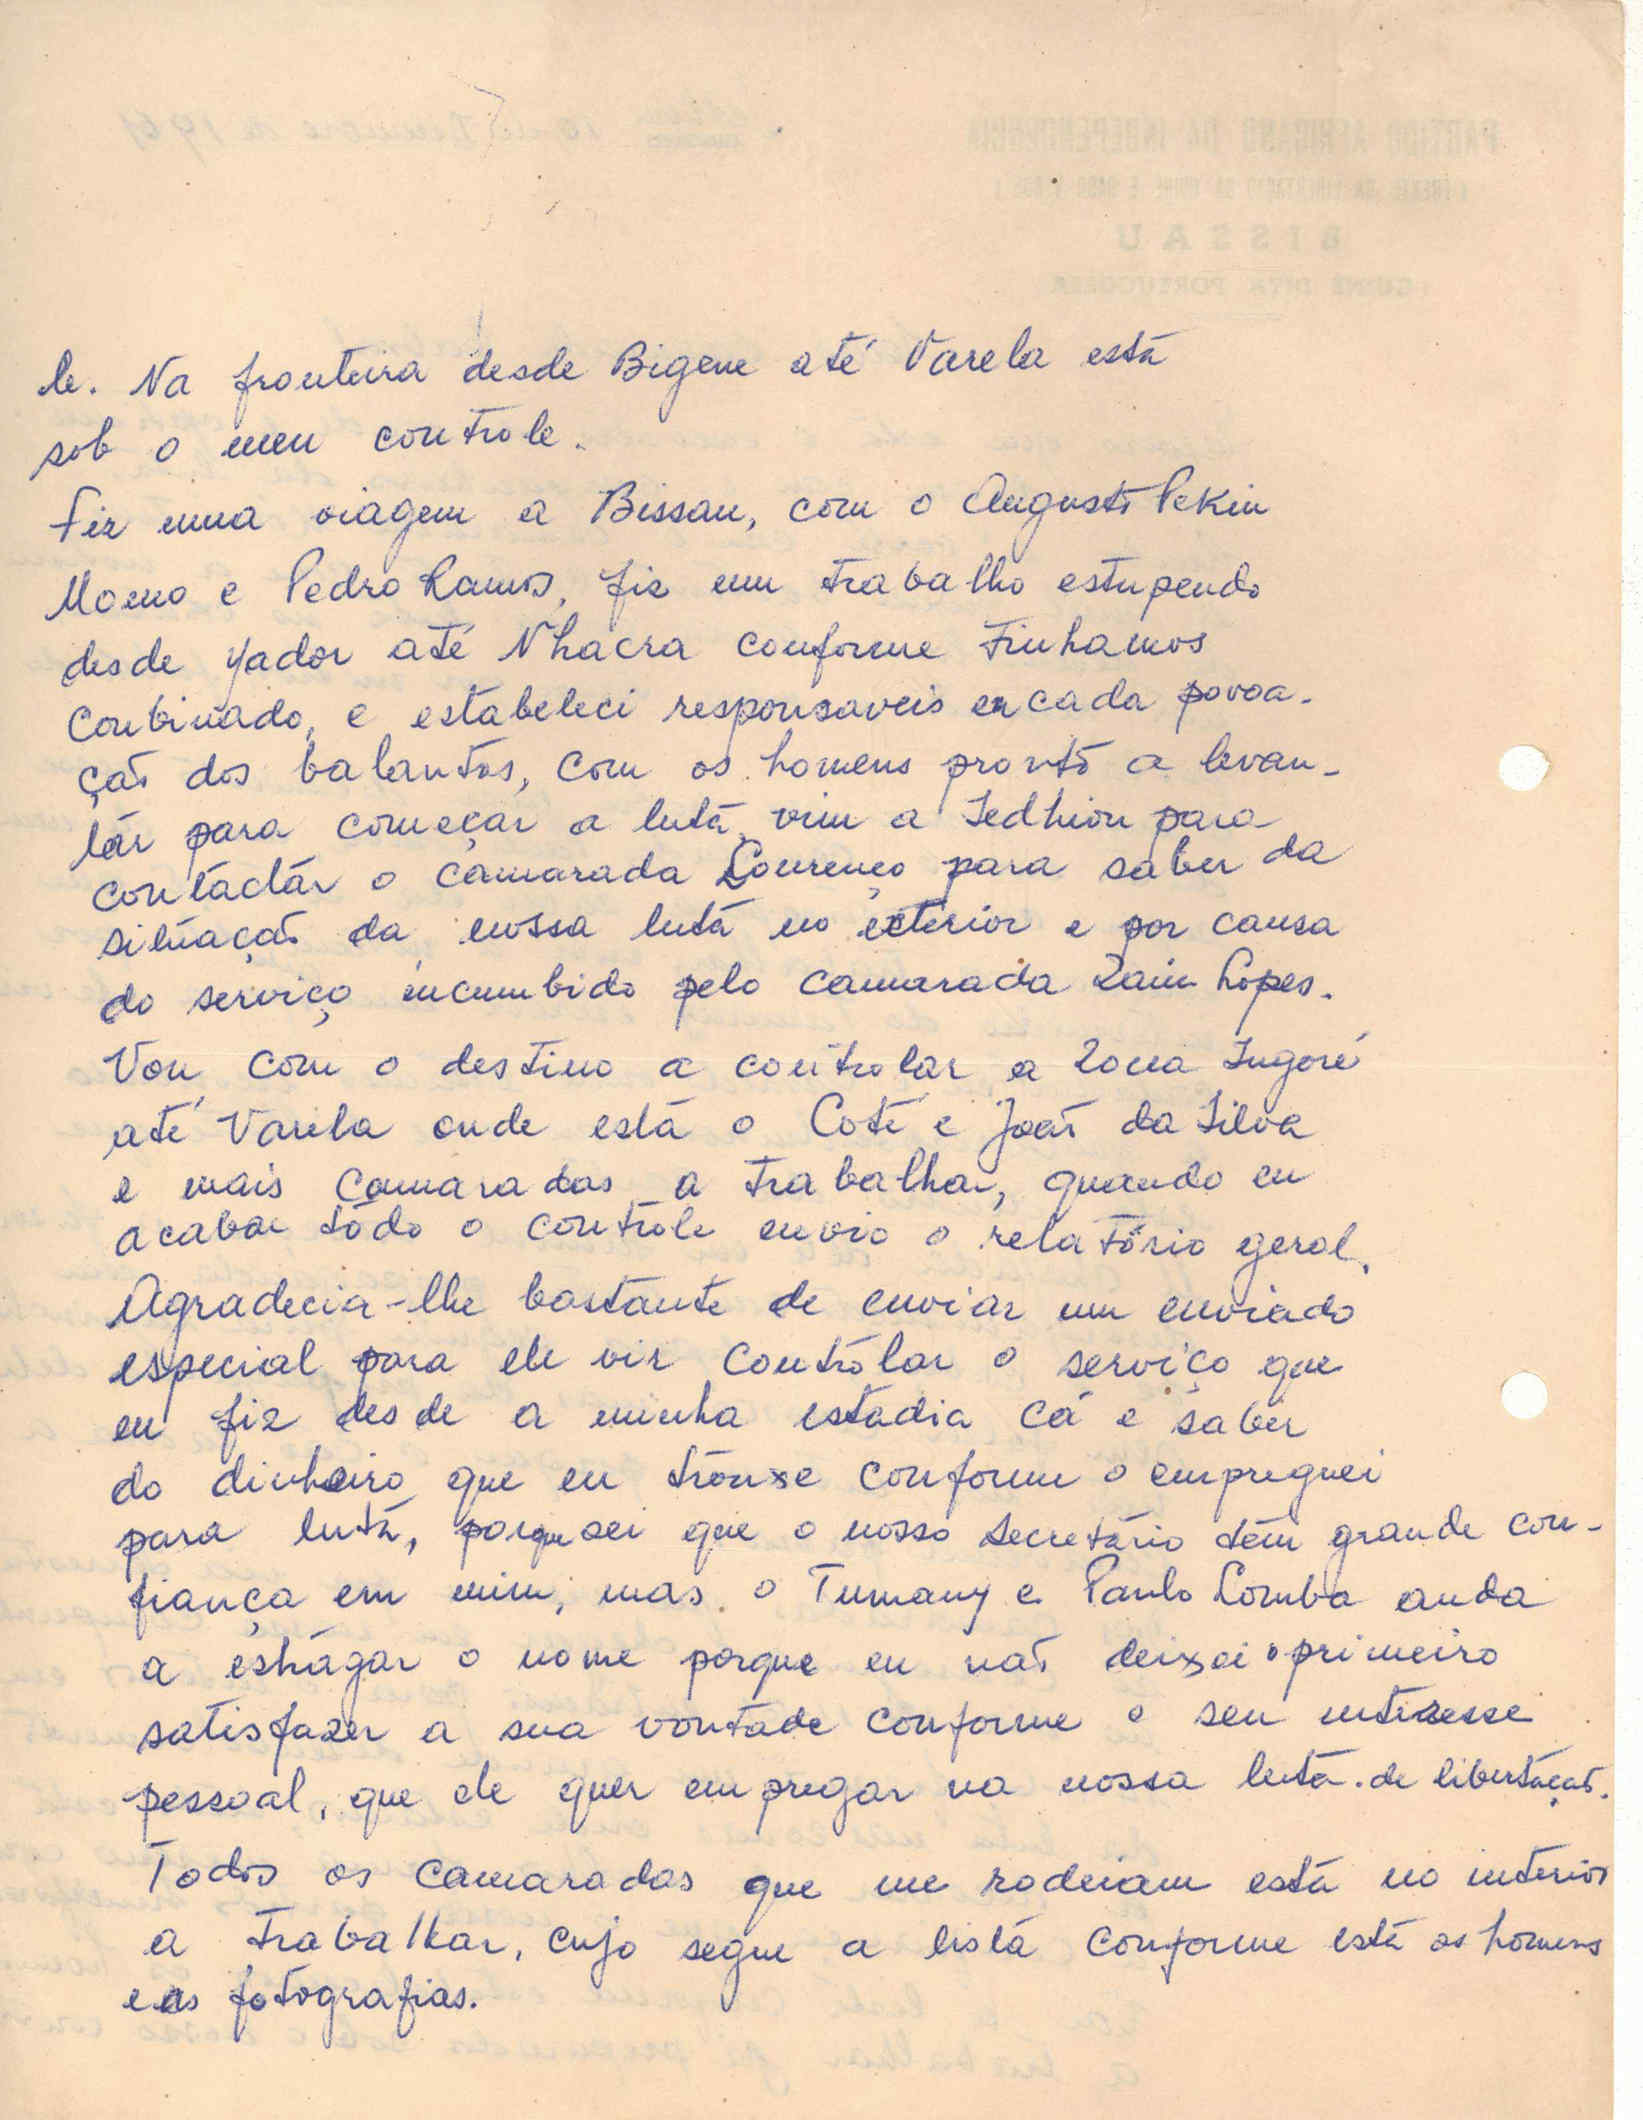 le. Na fronteira desde Bigene até Varela está
sob o meu controle.
Fiz uma viagem a Bissau, com o Augusto Pekin
Momo e Pedro Ramos, fiz um trabalho estupendo
desde yador até Nhacra conforme tinhamos
combinado, e estabeleci responsaveis en cada povoa-
ção dos balantas, com os homens pronto a levan-
tár para começar a luta, vim a Sedhiou para
contactár o camarada Lourenço para saber da
situação da nossa luta no exterior e por causa
do serviço incumbido pelo camarada Rain Lopes.
Vou com o destino a controlar a zona Ingoré
até Varela onde está o Coté e João da Silva
e mais camaradas a trabalhar, quando eu
acabar tôdo o controle envio o relatório geral.
Agradecia-lhe bastante de enviar um enviado
especial para ele vir controlar o serviço que
eu fiz desde a minha estadia cá e saber
do dinheiro que eu trouxe conforme o empreguei
para luta, porque sei que o nosso Secretário têm grande con-
fiança em mim, mas o Tumany e Paulo Lomba anda
a estragar o nome porque eu não deixei o primeiro
satisfazer a sua vontade conforme o seu interesse
pessoal, que ele quer empregar na nossa luta de libertação.
Todos os camaradas que me rodeiam está no interior
a trabalhar, cujo segue a lista conforme está os homens
e as fotografias.